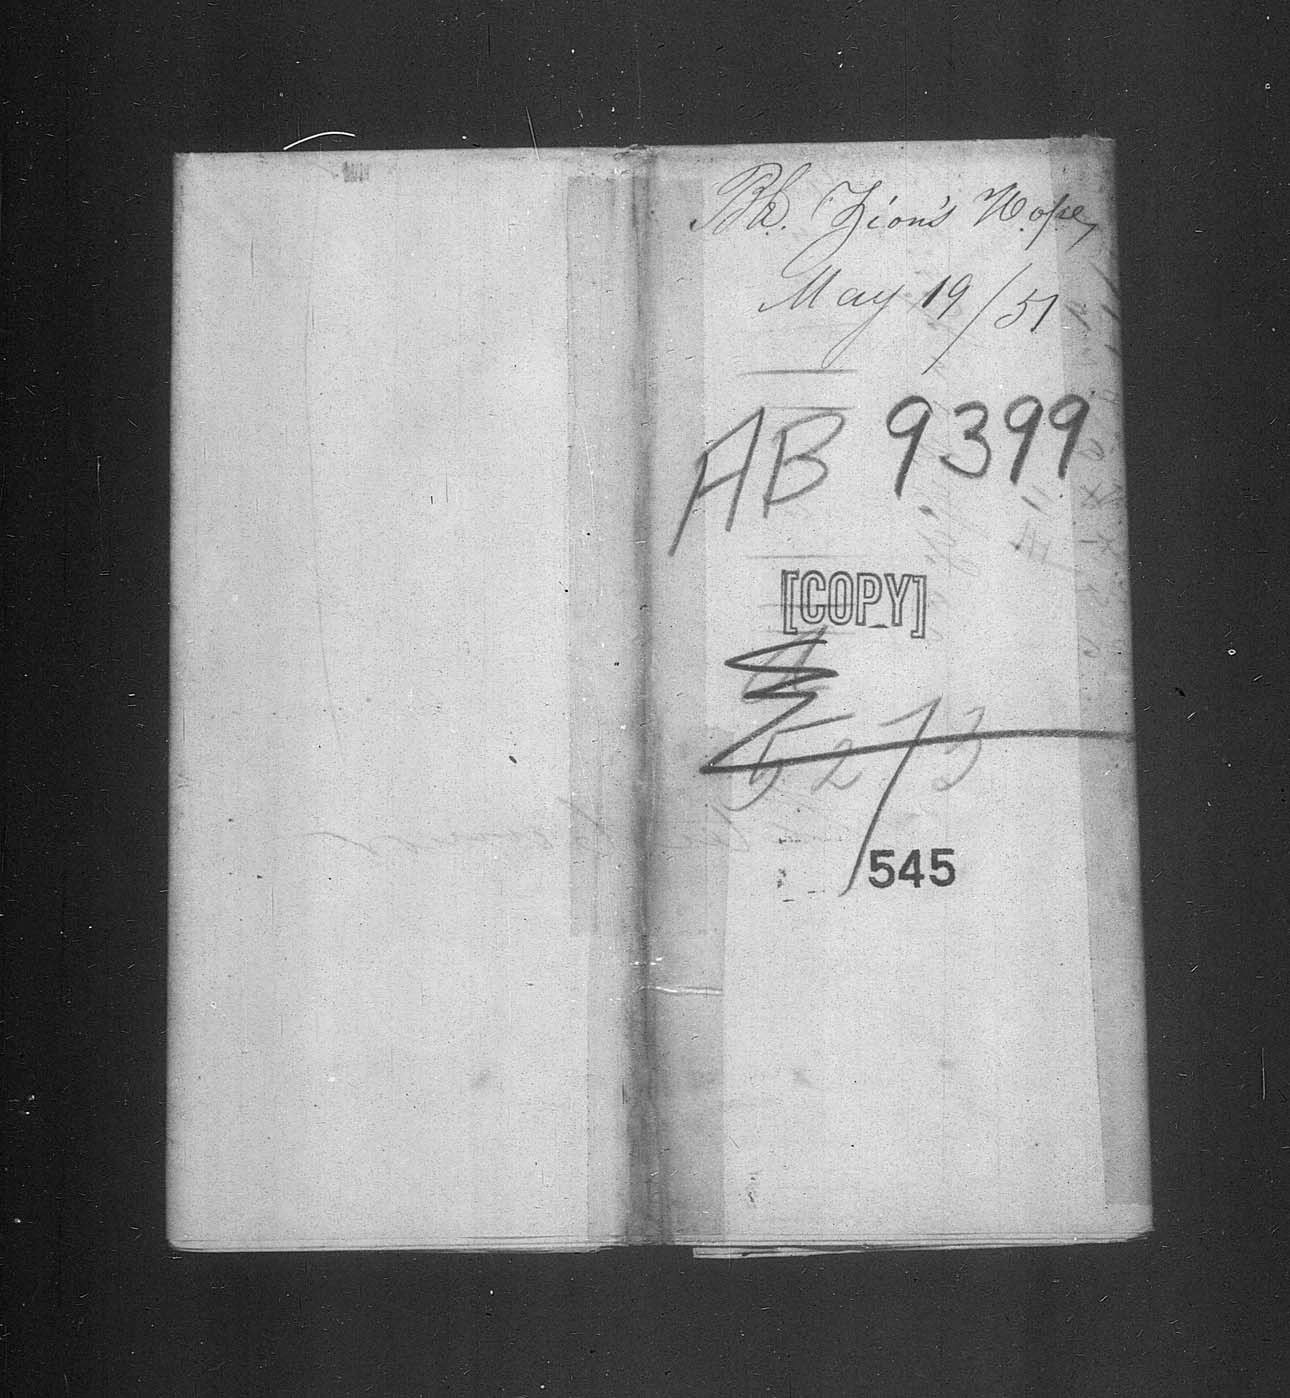 Bk. Zion's Hope,
May 19/51
AB 9399
[COPY]
5273
545